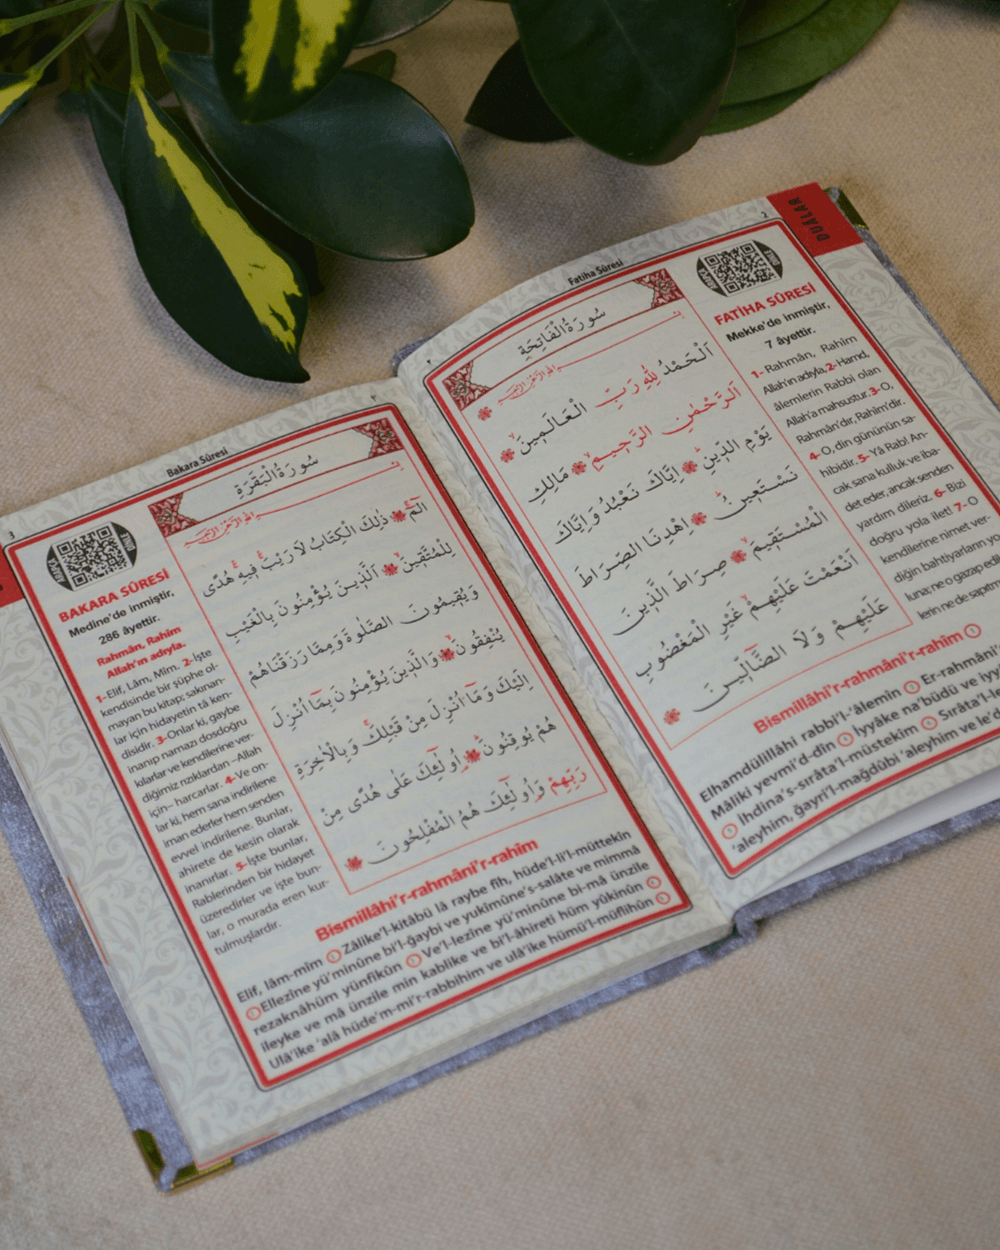 DUÂLAR
2
Fatiha Sûresi
٢
سُورَةُ الْفَاتِحَةِ
بِسْمِ اللّٰهِ الرَّحْمٰنِ الرَّحِيمِ
اَلْحَمْدُ لِلّٰهِ رَبِّ الْعَالَمِينَۙ
اَلرَّحْمٰنِ الرَّحِيمِۙ مَالِكِ
يَوْمِ الدِّينِۜ اِيَّاكَ نَعْبُدُ وَاِيَّاكَ
نَسْتَعِينُۜ اِهْدِنَا الصِّرَاطَ
الْمُسْتَقِيمَۙ صِرَاطَ الَّذِينَ
اَنْعَمْتَ عَلَيْهِمْ غَيْرِ الْمَغْضُوبِ
عَلَيْهِمْ وَلَا الضَّٓالِّينَ
FATİHA SÛRESİ
Mekke'de inmiştir,
7 âyettir.
1- Rahmân, Rahîm
Allah'ın adıyla, 2- Hamd,
âlemlerin Rabbi olan
Allah'a mahsustur. 3- O,
Rahmân'dır, Rahîm'dir.
4- O, dîn gününün sa-
hibidir. 5- Yâ Rab! An-
cak sana kulluk ve iba-
det eder, ancak senden
yardım dileriz. 6- Bizi
doğru yola ilet! 7- O
kendilerine nimet ver-
diğin bahtiyarların yo-
luna; ne o gazap edi
lerin ne de sapıtm
Bismillâhi'r-rahmâni'r-rahîm
Elhamdülillâhi rabbi'l-'âlemîn Er-rahmâni'
Mâliki yevmi'd-dîn İyyâke na'büdü ve iyy
İhdina's-sırâta'l-müstekîm Sırâta'l-l
'aleyhim, ğayri'l-mağdûbi 'aleyhim ve le'd
3
Bakara Sûresi
٣
سُورَةُ الْبَقَرَةِ
بِسْمِ اللّٰهِ الرَّحْمٰنِ الرَّحِيمِ
الٓمٓۜ ذٰلِكَ الْكِتَابُ لَا رَيْبَۚ فِيهِۚ هُدًى
لِلْمُتَّقِينَۙ اَلَّذِينَ يُؤْمِنُونَ بِالْغَيْبِ
وَيُقِيمُونَ الصَّلٰوةَ وَمِمَّا رَزَقْنَاهُمْ
يُنْفِقُونَۙ وَالَّذِينَ يُؤْمِنُونَ بِمَٓا اُنْزِلَ
اِلَيْكَ وَمَٓا اُنْزِلَ مِنْ قَبْلِكَۚ وَبِالْاٰخِرَةِ
هُمْ يُوقِنُونَۜ اُولٰٓئِكَ عَلٰى هُدًى مِنْ
رَبِّهِمْ وَاُولٰٓئِكَ هُمُ الْمُفْلِحُونَ
BAKARA SÛRESİ
Medîne'de inmiştir,
286 âyettir.
Rahmân, Rahîm
Allah'ın adıyla.
1- Elif, Lâm, Mîm. 2- İşte
kendisinde bir şüphe ol-
mayan bu kitap; sakınan-
lar için hidayetin tâ ken-
disidir. 3- Onlar ki, gaybe
inanıp namazı dosdoğru
kılarlar ve kendilerine ver-
diğimiz rızıklardan –Allah
için– harcarlar. 4- Ve on-
lar ki, hem sana indirilene
iman ederler hem senden
evvel indirilene. Bunlar,
ahirete de kesin olarak
inanırlar. 5- İşte bunlar,
Rablerinden bir hidayet
üzeredirler ve işte bun-
lar, o murada eren kur-
tulmuşlardır.
Bismillâhi'r-rahmâni'r-rahîm
Elif, lâm-mîm Zâlike'l-kitâbü lâ raybe fîh, hüde'l-li'l-müttekîn
Ellezîne yü'minûne bi'l-ğaybi ve yukîmûne's-salâte ve mimmâ
rezaknâhüm yünfikûn Ve'l-lezîne yü'minûne bi-mâ ünzile
ileyke ve mâ ünzile min kablike ve bi'l-âhireti hüm yûkinûn
Ulâ'ike 'alâ hüde'm-mi'r-rabbihim ve ulâ'ike hümü'l-müflihûn